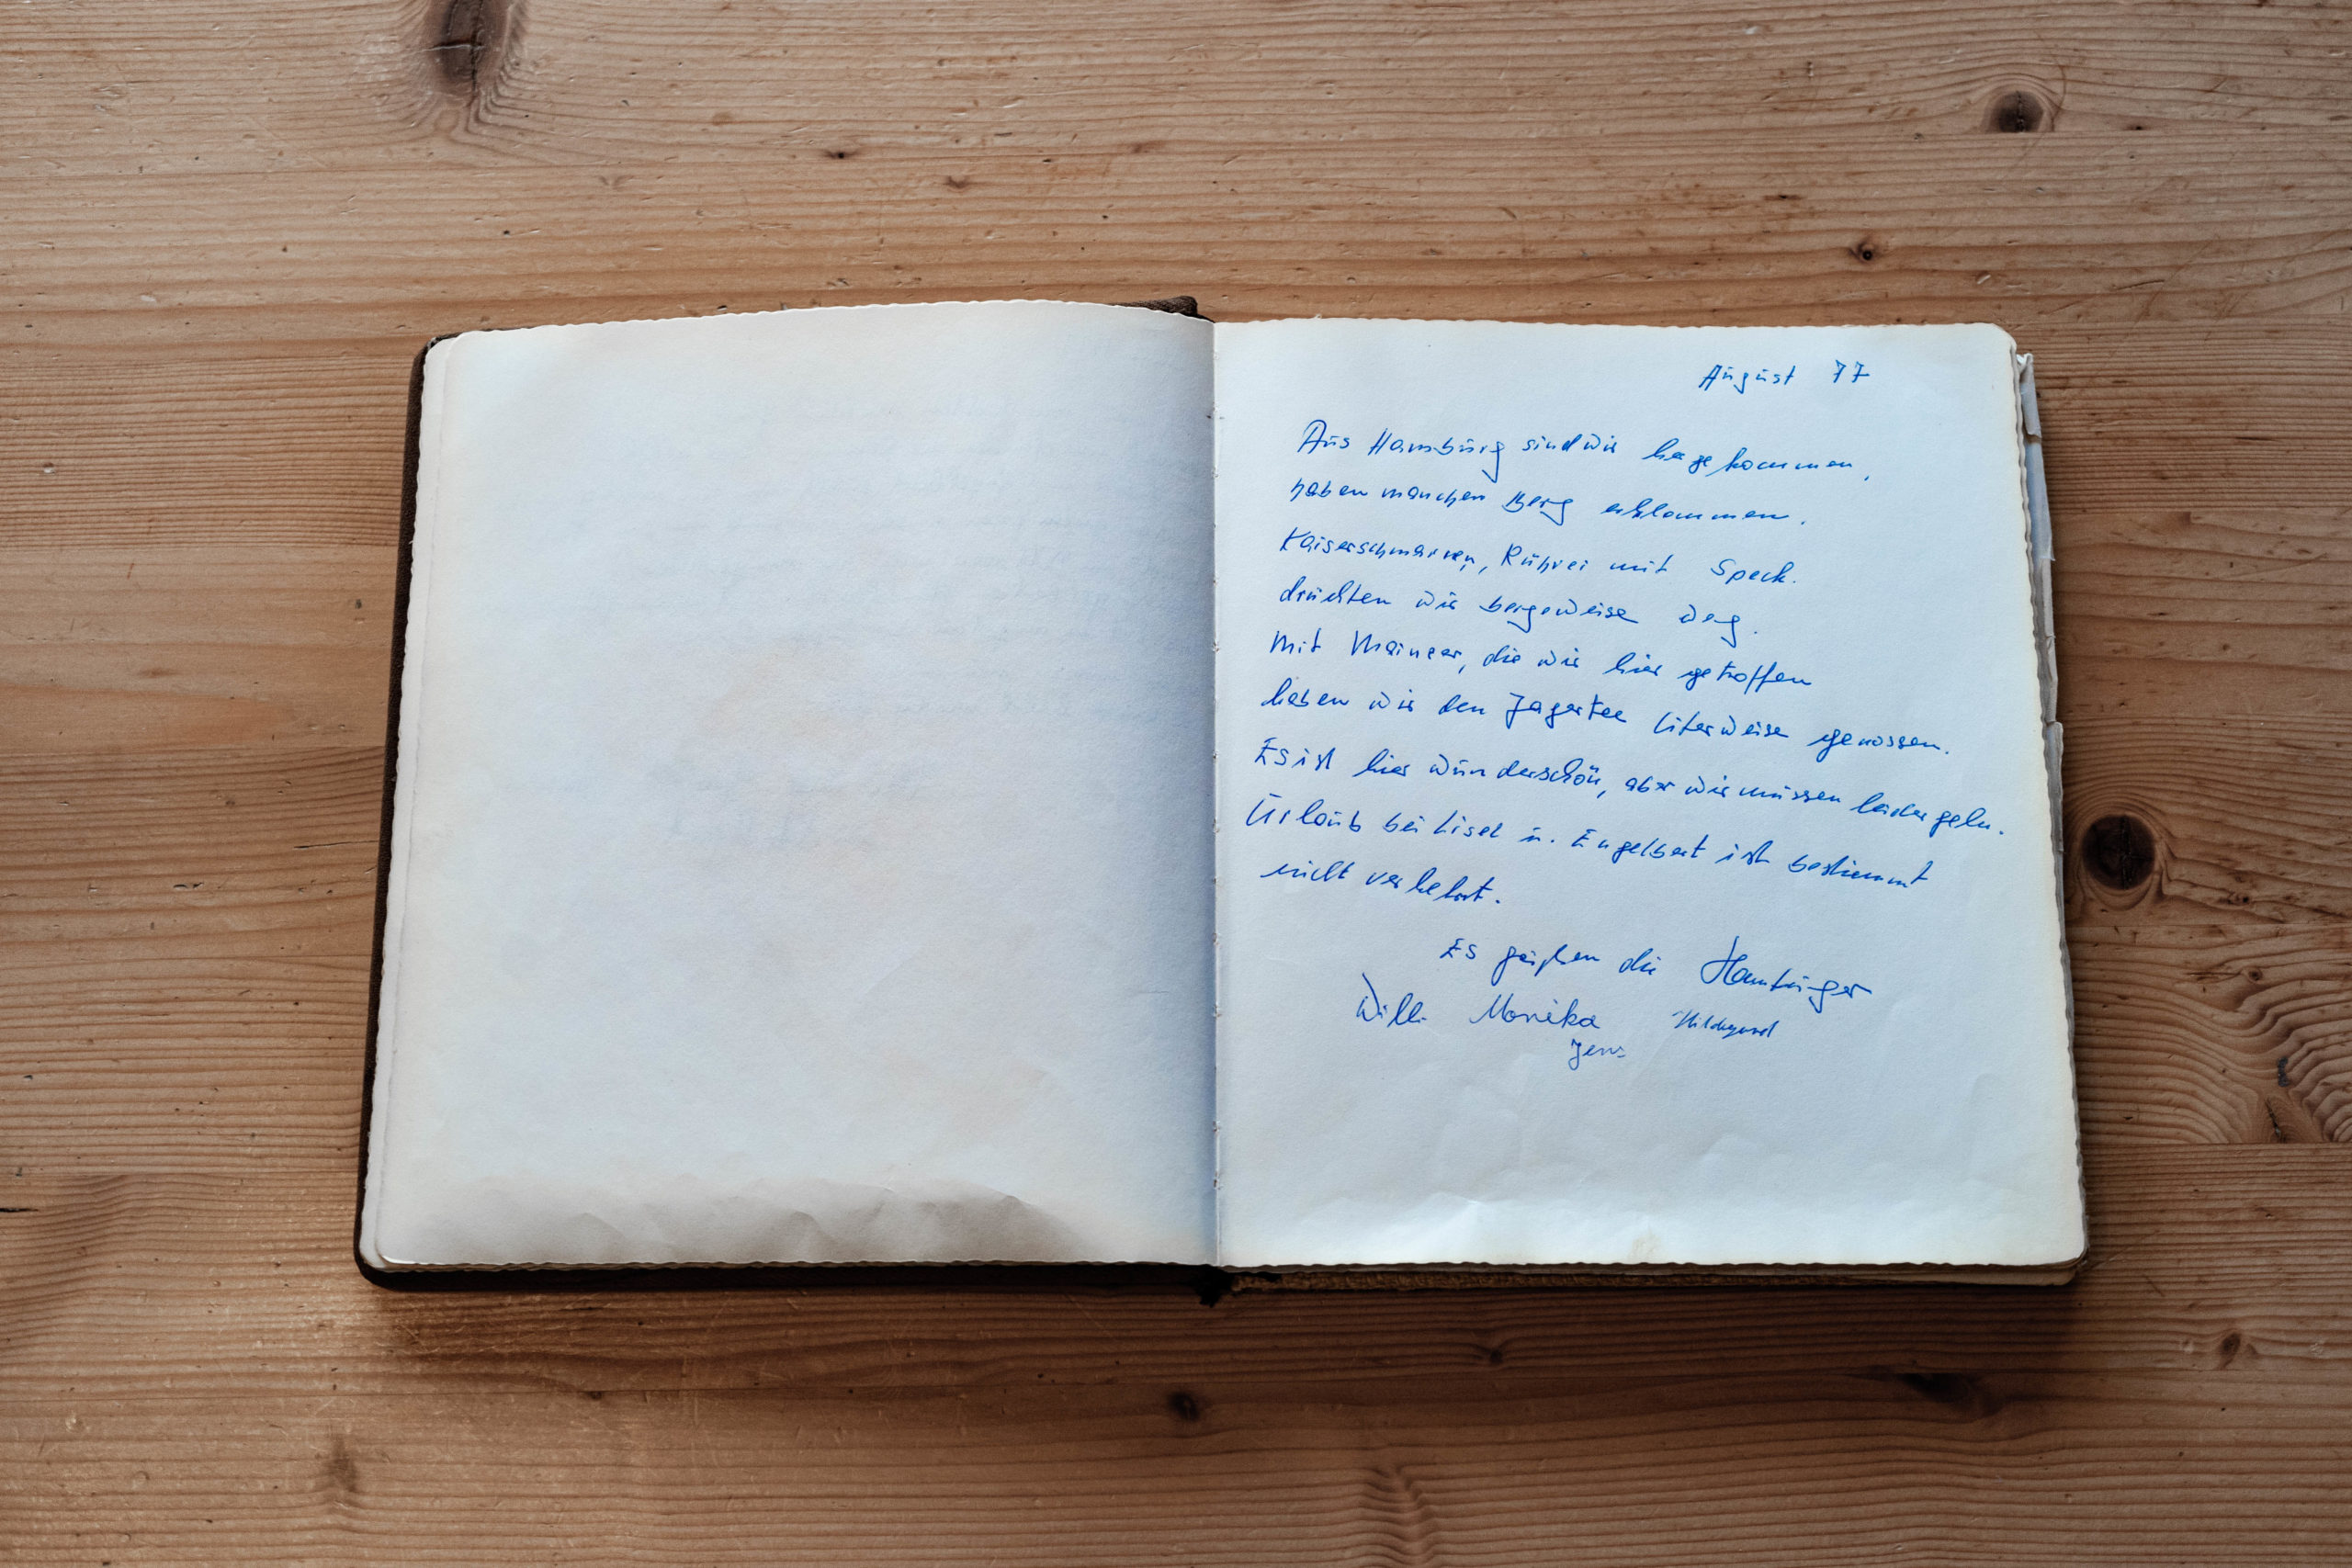 August 77
Aus Hamburg sind wir hergekommen,
haben manchen Berg erklommen.
Kaiserschmarren, Rührei mit Speck.
drückten wir bergeweise weg.
Mit Mainzer, die wir hier getroffen
haben wir den Jagertee literweise genossen.
Es ist hier wunderschön, aber wir müssen leider gehn.
Urlaub bei Lisel u. Engelbert ist bestimmt
nicht verkehrt.
Es grüßen die Hamburger
Willi Monika Hildegard
Jens